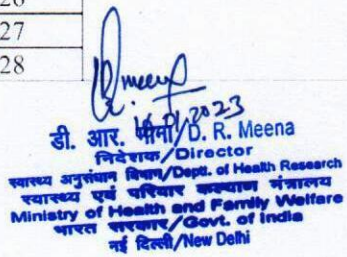 26
27
28
Dmeena
16/01/2023
डी. आर. मीना/D. R. Meena
निदेशक/Director
स्वास्थ्य अनुसंधान विभाग/Deptt. of Health Research
स्वास्थ्य एवं परिवार कल्याण मंत्रालय
Ministry of Health and Family Welfare
भारत सरकार/Govt. of India
नई दिल्ली/New Delhi